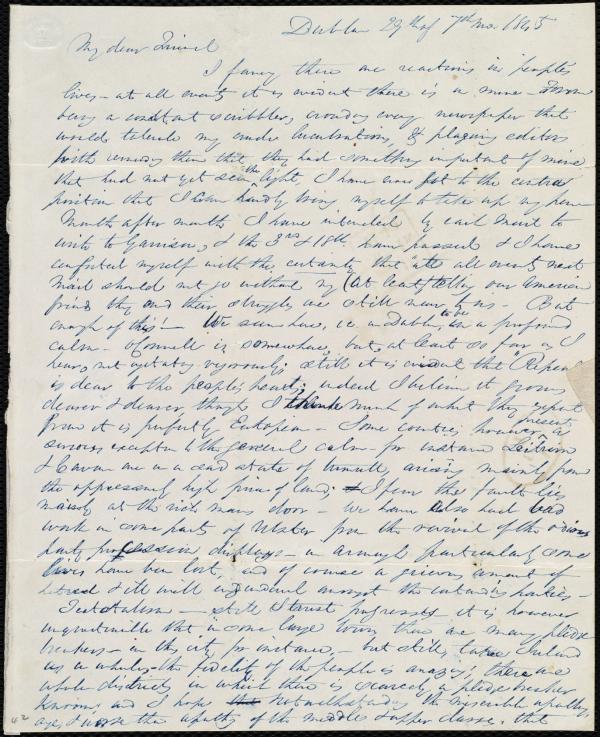 Dublin 29th of 7th mo. 1845
My dear Friend
I fancy there are reactions in people's
lives - at all events it is evident there is in mine - From
being a constant scribbler, crowding every newspaper that
would tolerate my crude lucubrations, & plaguing editors
with worrying them that they had something important of mine
that had not yet seen the light, I have now got to the contrary
position that I can hardly bring myself to take up my pen
Month after month I have intended by each mail to
write to Garrison, & the 3rd & 18th have passed & I have
comforted myself with the certainty that "at all events next
mail should not go without my (at least) telling our American
friends they and their struggles are still near to us - But
enough of this! - We seem here, ie in Dublin, to be in a profound
calm - O'Connell is somewhere, but, at least so far as I
hear, not agitating vigorously; still it is evident that "Repeal"
is dear to the people's hearts; indeed I believe it grows
dearer & dearer though I think much of what they expect
from it is perfectly European - Some counties however present a
serious exception to the general calm - for instance Leitrim
& Cavan are in a sad state of tumult, arising mainly from
the oppressively high price of land; & I fear the fault lies
mainly at the rich man's door - We have also had bad
work in some parts of Ulster from the revival of the odious
party procession displays - in Armagh particularly some
lives have been lost, and of course a grievous amount of
hatred & ill will engendered amongst the contending parties -
Teetotalism - still I trust progresses - it is however
unquestionable that in some large towns there are many pledge
breakers - in this city for instance, - but still, take Ireland
as a whole, the fidelity of the people is amazing; there are
whole districts in which there is scarcely a pledge breaker
known; and I hope notwithstanding the miserable apathy,
aye, & worse than apathy of the middle & upper classes, that